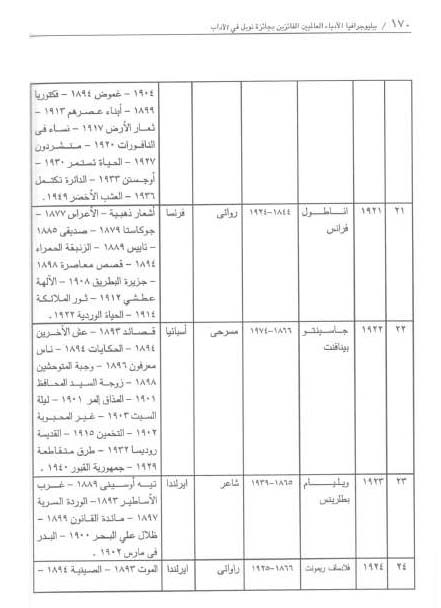 ١٧٠ / ببليوجرافيا الأدباء العالميين الفائزين بجائزة نوبل في الآداب
١٩٠٤ – غموض ١٨٩٤ – فكتوريا
١٨٩٩ – أبناء عصرهم ١٩١٣ –
ثمار الأرض ١٩١٧ – نساء فى
النافورات ١٩٢٠ – متشردون
١٩٢٧ – الحياة تستمر ١٩٣٠ –
أوجستن ١٩٣٣ – الدائرة تكتمل
١٩٣٦ – العشب الأخضر ١٩٤٩ .
٢١ ١٩٢١ اناطول ١٨٤٤–١٩٢٤ روائى فرنسا أشعار ذهبية – الأعراس ١٨٧٧ –
فرانس جوكاستا ١٨٧٩ – صديقى ١٨٨٥
– تاييس ١٨٨٩ – الزنبقة الحمراء
١٨٩٤ – قصص معاصرة ١٨٩٨
– جزيرة البطريق ١٩٠٨ – الآلهة
عطشي ١٩١٢ – ثور الملائكة
١٩١٤ – الحياة الوردية ١٩٢٢ .
٢٢ ١٩٢٢ جاسينتو ١٨٦٦–١٩٧٤ مسرحى أسبانيا قصائد ١٨٩٣ – عش الآخرين
بينافنت ١٨٩٤ – الحكايات ١٨٩٤ – ناس
معرفون ١٨٩٦ – وجبة المتوحشين
١٨٩٨ – زوجة السيد المحافظ
١٩٠١ – المذاق المر ١٩٠١ – ليلة
السبت ١٩٠٣ – غير المحبوبة
١٩٠٢ – التخمين ١٩١٥ – القديسة
روديسا ١٩٣٢ – طرق متقاطعة
١٩٢٩ – جمهورية القبور ١٩٤٠ .
٢٣ ١٩٢٣ ويليام ١٨٦٥–١٩٣٩ شاعر ايرلندا تيه أوسينى ١٨٨٩ – غرب
بطلربتس الأساطير ١٨٩٣– الوردة السرية
١٨٩٧ – مائدة القانون ١٨٩٩ –
ظلال علي البحر ١٩٠٠ – البدر
فى مارس ١٩٠٢ .
٢٤ ١٩٢٤ فلاتساف ريمونت ١٨٦٦–١٩٢٥ راوائى ايرلندا الموت ١٨٩٣ – الصينية ١٨٩٤ –